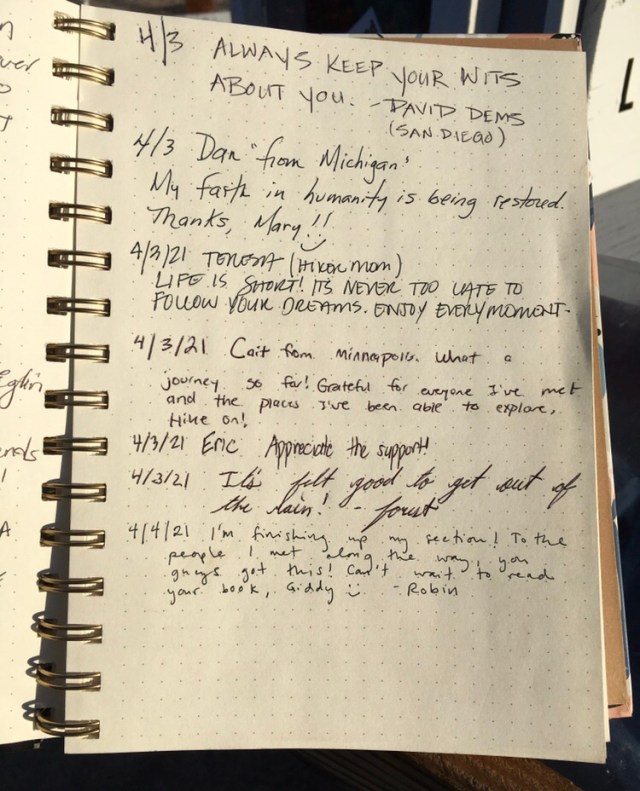 4/3 ALWAYS KEEP YOUR WITS
ABOUT YOU. - DAVID DEMS
(SAN DIEGO)
4/3 Dan "from Michigan"
My faith in humanity is being restored.
Thanks, Mary!!
4/3/21 TERESA (HIKER MOM)
LIFE IS SHORT! ITS NEVER TOO LATE TO
FOLLOW YOUR DREAMS. ENJOY EVERY MOMENT.
4/3/21 Cait from Minneapolis. What a
journey so far! Grateful for everyone I've met
and the places I've been able to explore,
Hike on!
4/3/21 Eric Appreciate the support!
4/3/21 It's felt good to get out of
the rain! - forest
4/4/21 I'm finishing up my section! To the
people I met along the way, you
guys got this! Can't wait to read
your book, Giddy :) - Robin
Eglin
L